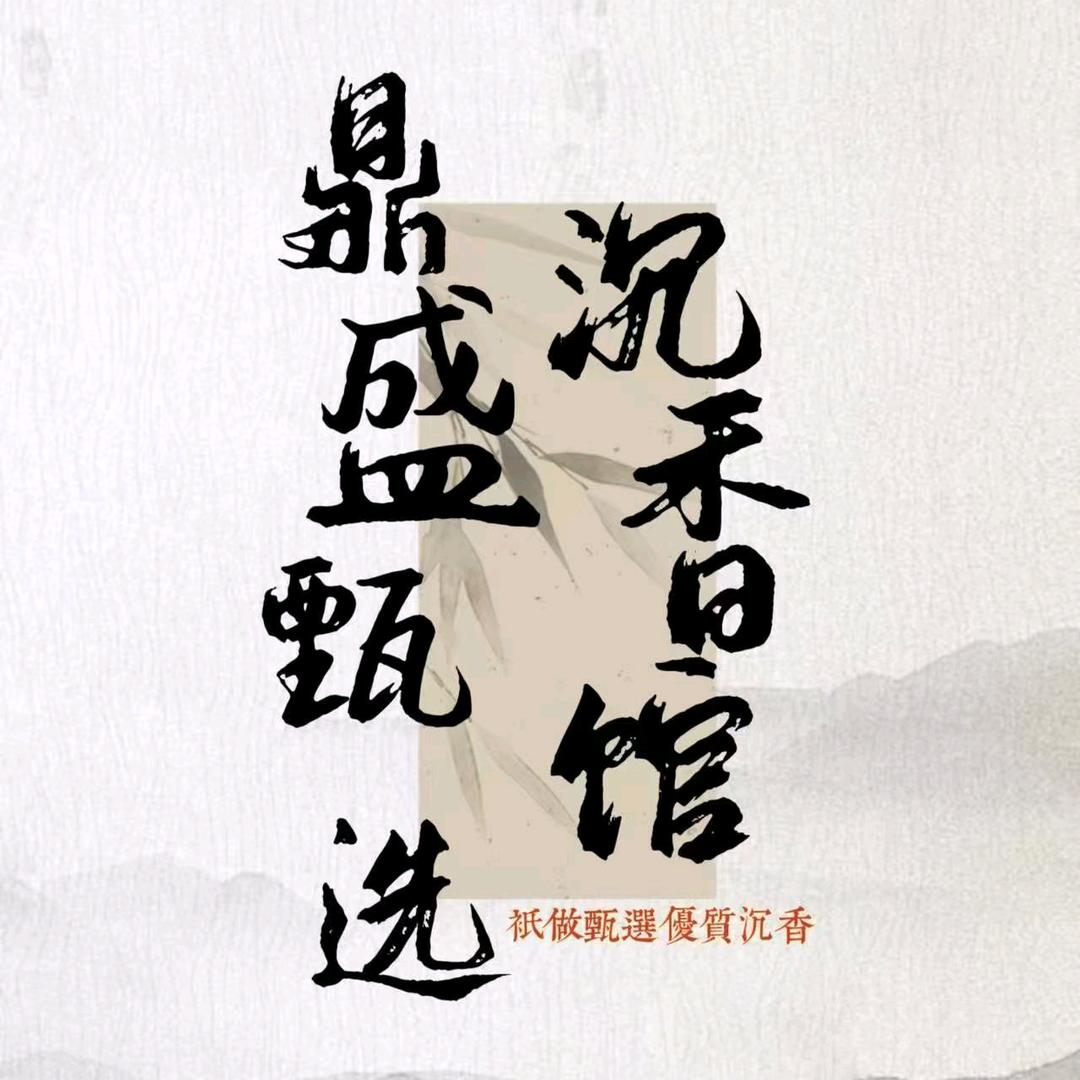 鼎盛甄选
沉香馆
祇做甄選優質沉香